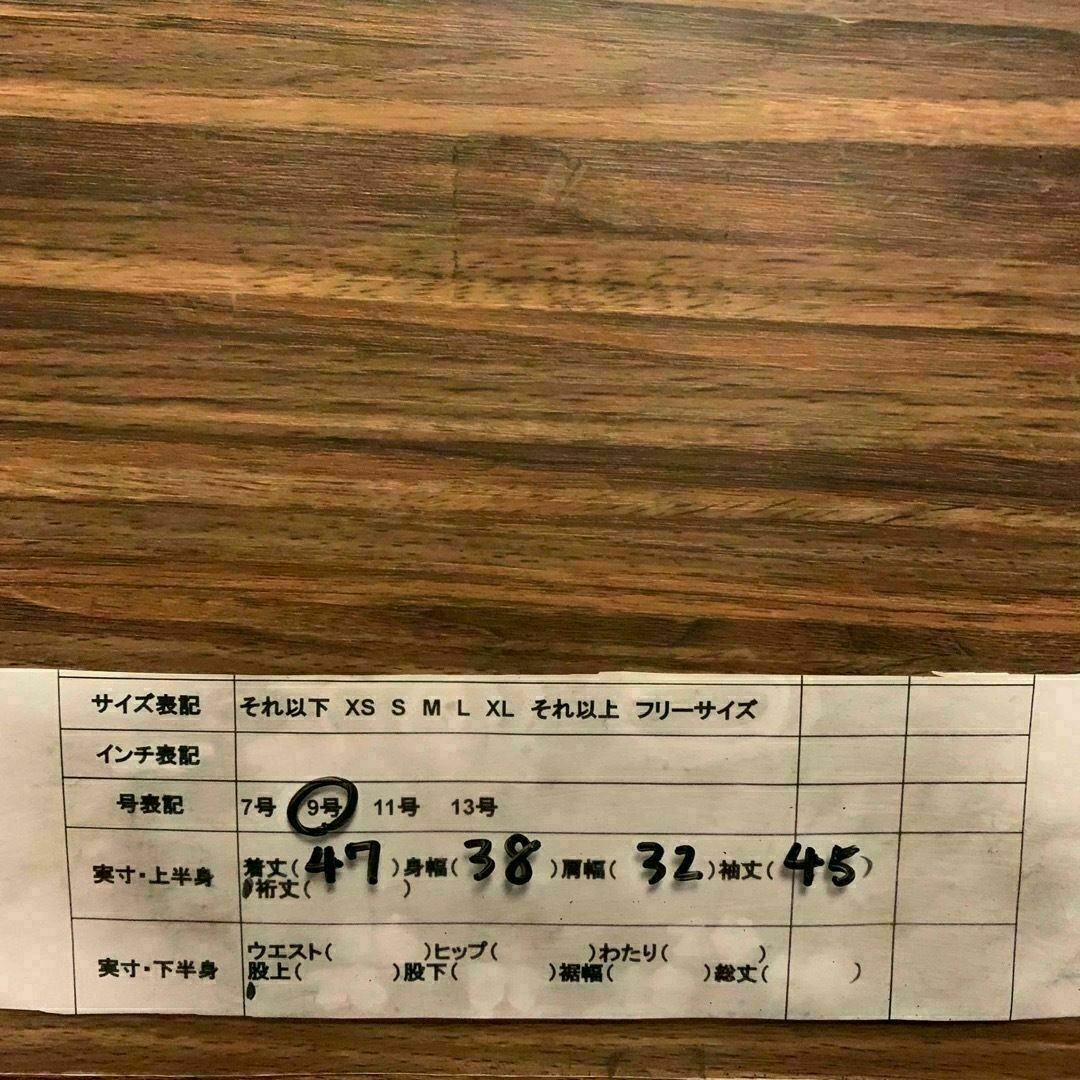 サイズ表記 それ以下 XS S M L XL それ以上 フリーサイズ
インチ表記
号表記 7号 9号 11号 13号
実寸・上半身 着丈( 47 )身幅( 38 )肩幅( 32 )袖丈( 45 )
裄丈( )
実寸・下半身 ウエスト( )ヒップ( )わたり( )
股上( )股下( )裾幅( )総丈( )